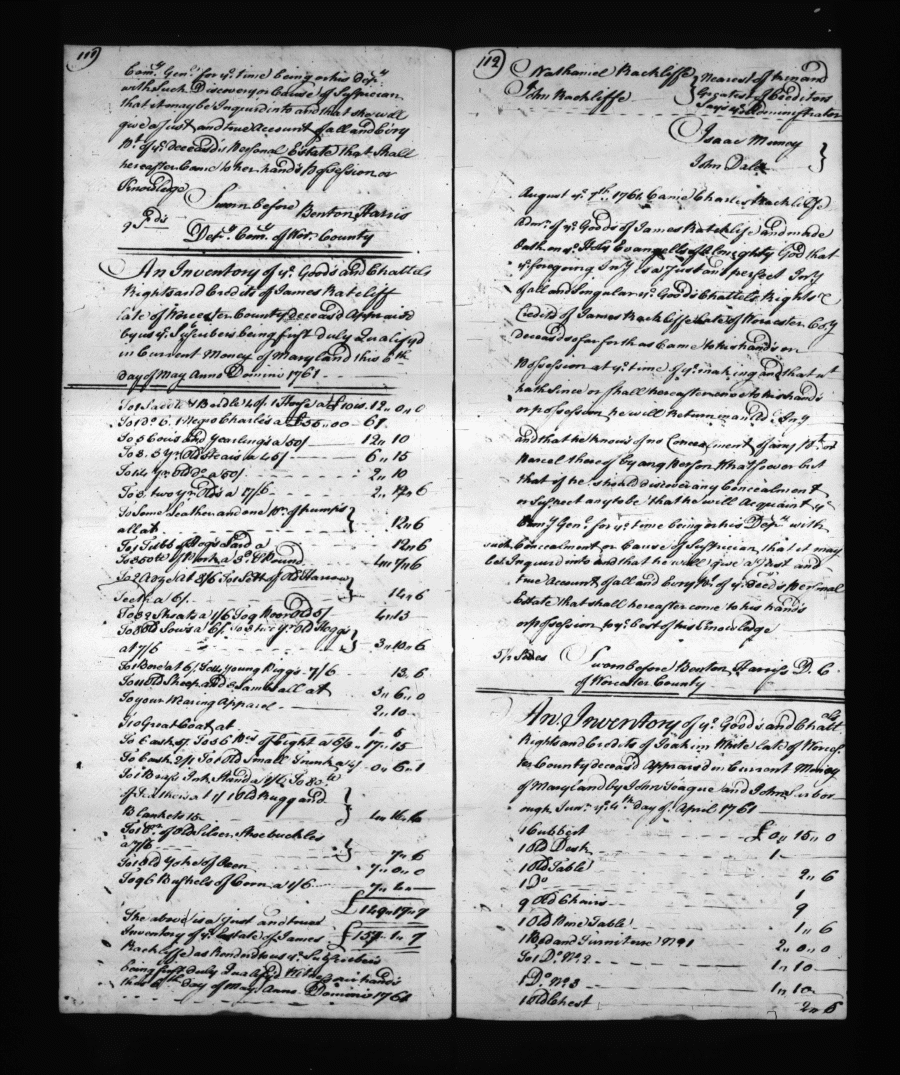 111
Com.y Gen.l for y.e time being or his Dep.y
with Such Discovery or Cause of Suspician
that it may be Inquird into and that she will
give a Just and true Account of all and Every
P.t of y.e deceasd.s Personal Estate that Shall
hereafter Came to her hands Possession or
Knowledge
Sworn before Benton Harris
9 Sds
Dep.y Com.y of Wor.r County
An Inventory of y.e Goods and Chattels
Rights and Credits of James Ratcliff
late of Worcester County deceasd Appraisd
by us y.e Subscribers being first duly Qualifyd
in Current Money of Maryland this 6th
day of May Anno Domini 1761
To 1 Saddle & Bridle 40/ 1 Horse at £10 is 12 " 0 " 0
To 1 Do 6. 1 Negro Charles a £55 " 00 - 61
To 5 Cows and Yearlings a 50/ 12 " 10
To 3. 3 yr. Old Steers a 45/ 6 " 15
To 1 4 yr. Old Do a 50/ 2 " 10
To 3. two yr. Olds a 17/6 2 " 12 " 6
To Some Leather and one Pr. of pumps
all at 12 " 6
of Hogs Lard a 12 " 6
of Pork a 3d. Pound 4 " 7 " 6
of Old Harrow
Teeth a 6/. 14 " 6
To 32 Shoats a 1/6 To 9 Old 5/ 4 " 13
To 8 Old Sows a 6/. To 3 two yr. Old Hoggs
at 7/6 3 " 10 " 6
To 1 Bore at 6/ To young Piggs 7/6 13 " 6
To 11 Old Sheep and 2 Lambs all at 3 " 6 " 0
To your Waring Apparel 2 " 10
To 1 Great Coat at 1 - 5
To Cash 5/. To 56 Ps. of Eight a 6/0 17 " 15
To Cash 2/1 To 1 Old Small Trunk a 4/ 0 " 6 " 1
To 1 Brass Ink Stand a 1/6 To 80 lb
of Feathers a 1/ 1 Old Rugg and
Blankets 15 4 " 16 " 6
To 1 Pr. of Old Silver Shoe buckles
a 7/6 7 " 6
To 1 Old Yoke of Oxen 7 " 0 " 0
To 96 Bushels of Corn a 1/6 7 " 4
£149 " 17 " 7
The above is a Just and trues £157 " 1 " 7
Inventory of y.e Estate of James
Rackliffe as Rendred to us y.e Subscribers
being first duly Qualifyd Witness our hands
this 6th day of May Anno Domini 1761
112
Nathaniel Rackliffe } Nearest of kin and
John Rackliffe Greatest of Creditors
Says y.e Administrator
Isaac Muncy
John Dale }
August y.e 7th. 1761. Came Charles Rackliffe
Adm.r of y.e Goods of James Ratcliffe and made
Oath on y.e Holy Evangells of Almighty God that
y.e foregoing Inv.y is a Just and perfect Inv.y
of all and Singular y.e Goods Chattels Rights &
Credits of James Rackliffe late of Worcester Co.y
deceasd so far forth as Came to his hands or
Possession at y.e time of y.e making and that at
hath Since or Shall hereafter come to his hands
or possession he will Return in an Ad.l Inv.y
and that he knows of no Concealment of any Pt. or
Parcel thereof by any Person Whatsoever but
that if he should discover any Concealment
or Suspect any to be that he will Acquaint y.e
Com.y Gen.l for y.e time being or his Dep.y with
such Concealment or Cause of Suspician that it may
be Inquird into and that he will give a Just and
true Account of all and Every Pt. of y.e Decd.s Personal
Estate that shall hereafter come to his hands
or possession to y.e best of his Knowledge
5½ Sides Sworn before Benton Harris D. C
of Worcester County
An Inventory of y.e Goods and Chatt.ls
Rights and Credits of Joakim White late of Worces
ter County deceasd Appraisd in Current Money
of Maryland by John Teague and John Scarbor
ough Jun.r y.e 4th day of April 1761
1 Cubbert £0 " 15 " 0
1 Old Desk 1
1 Old Table 2 " 6
1 Do 1
9 Old Chairs 9
1 Old Pine Table 1 " 6
1 Bed and Furniture No 1 2 " 0 " 0
To 1 Do. No 2 1 " 10
1 Do. No 3 1 " 10
1 Old Chest 2 " 6